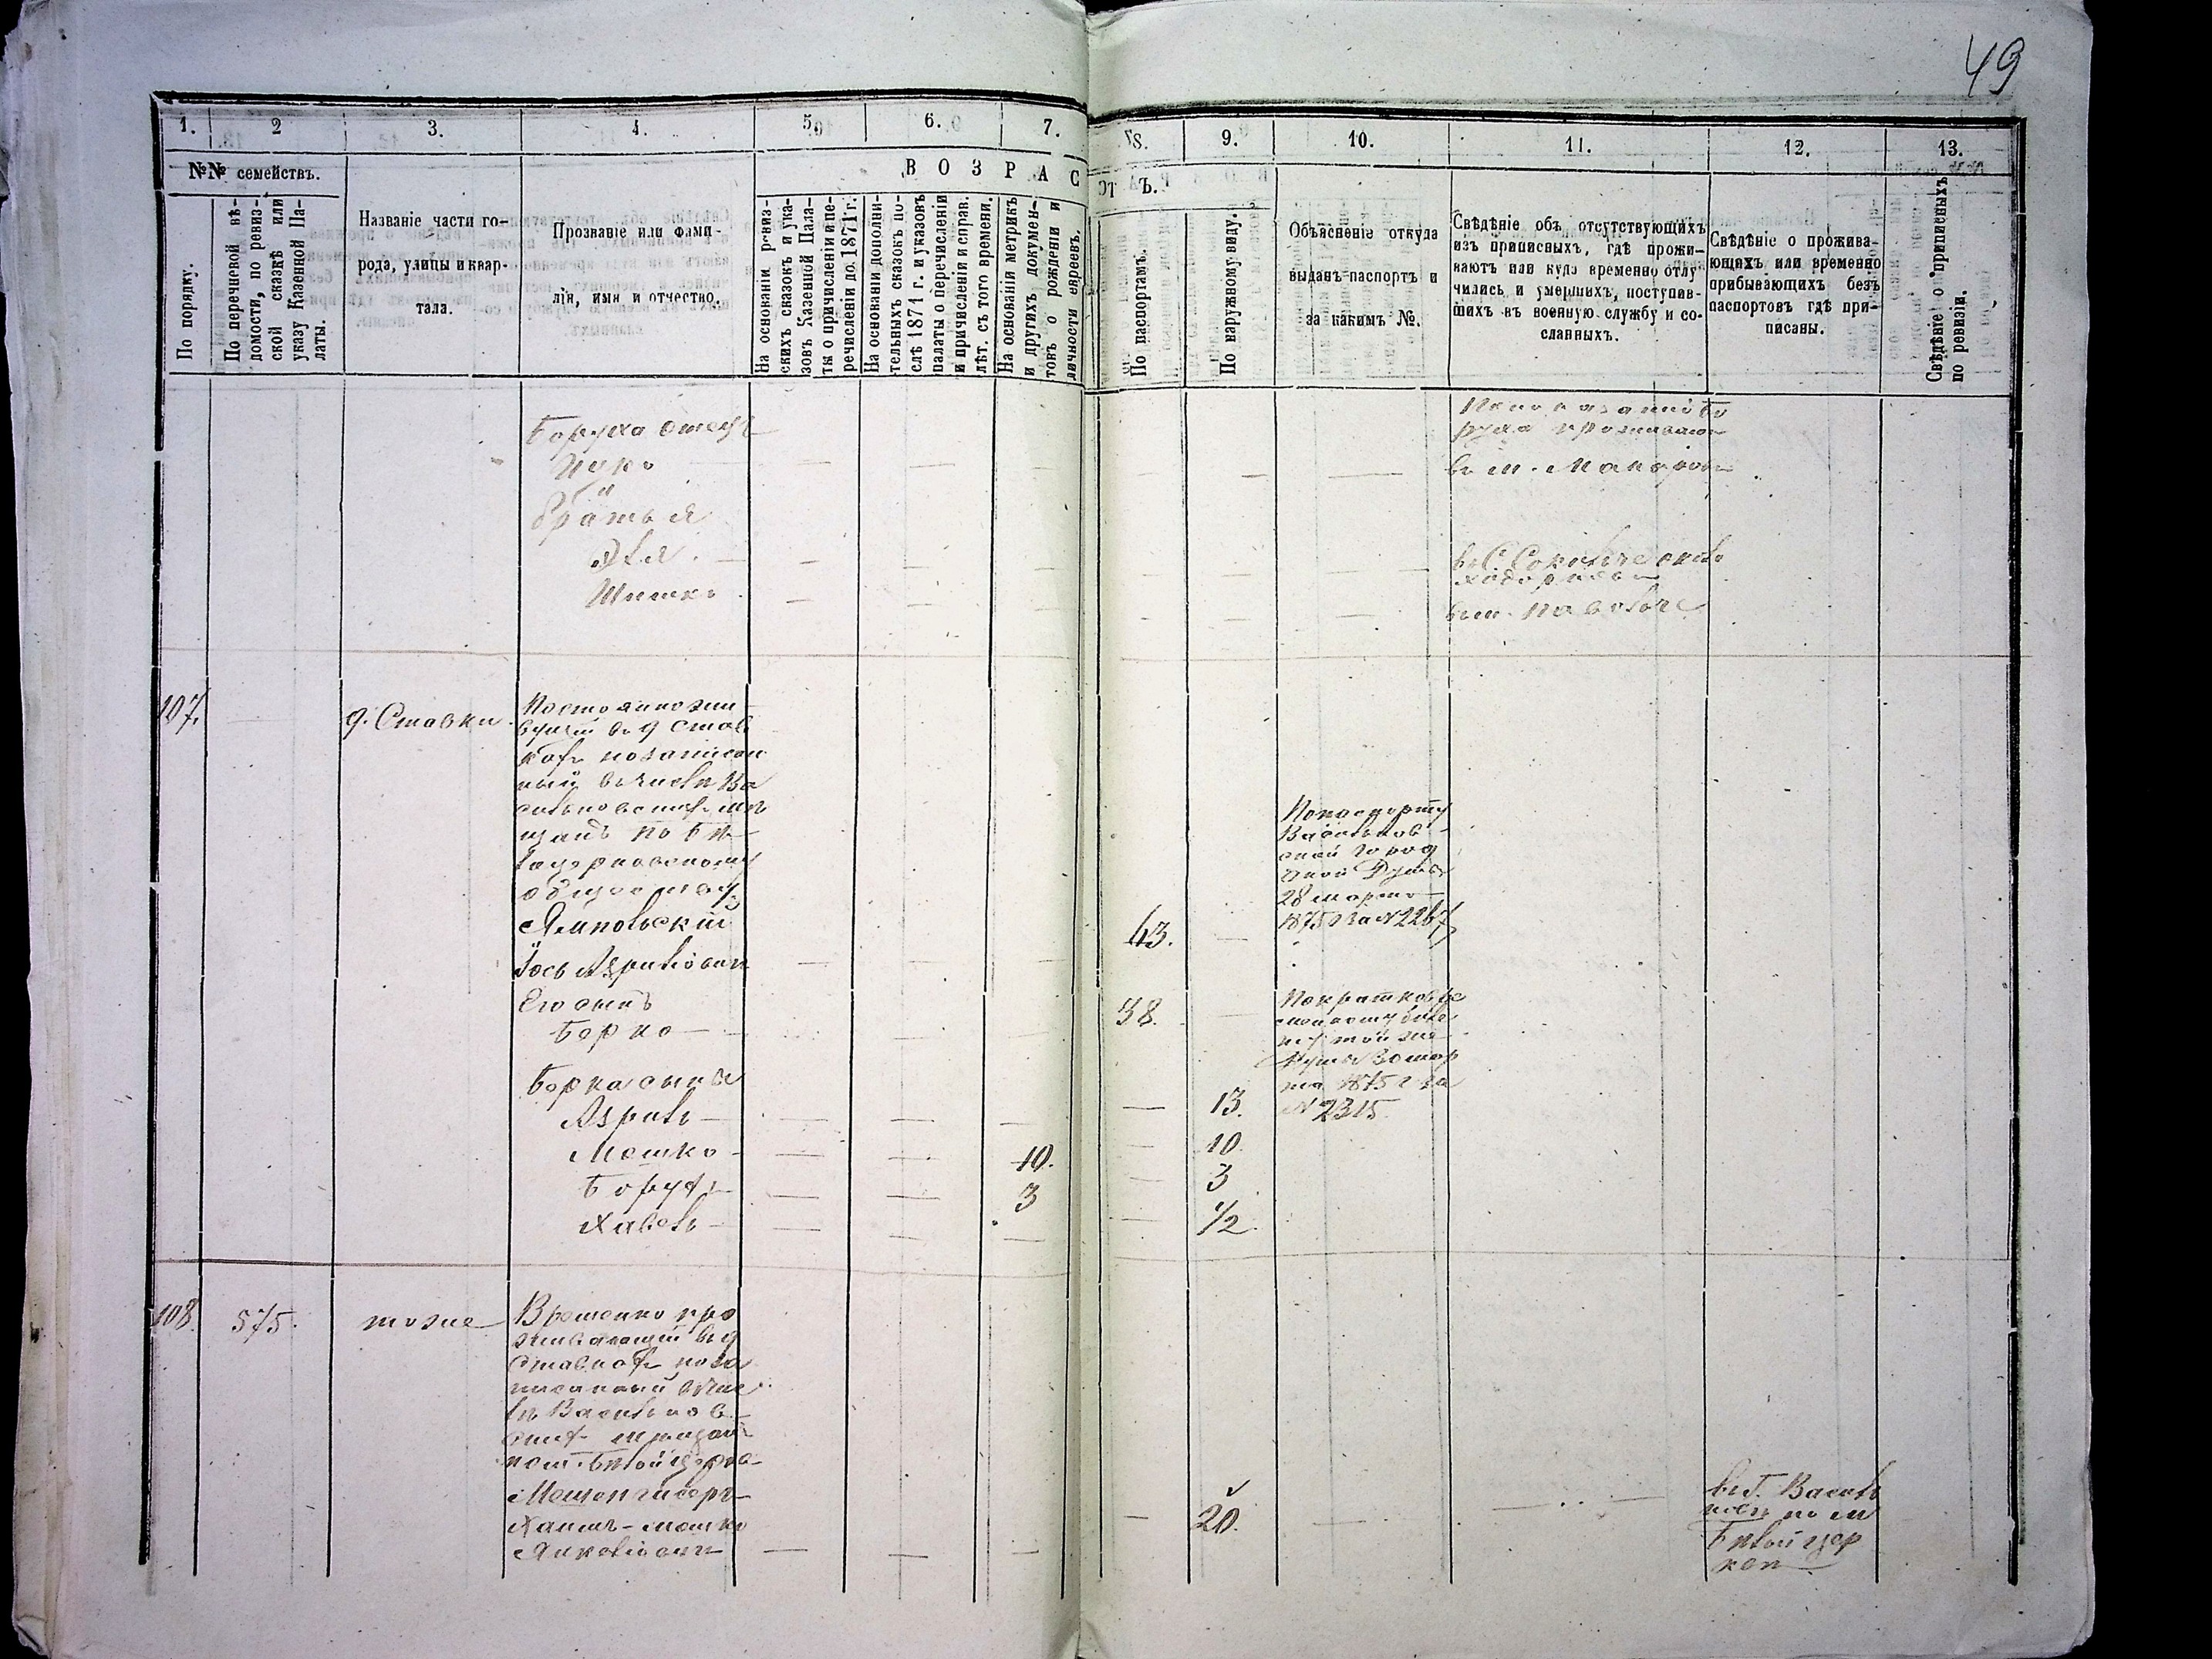 49
1. 2 3. 4. 5. 6. 7. 8. 9. 10. 11. 12. 13.
№№ семействъ.
В О З Р А С Т Ъ.
По порядку.
По перечневой вѣ-
домости, по ревиз-
ской сказкѣ или
указу Казенной Па-
латы.
Названіе части го-
рода, улицы и квар-
тала.
Прозваніе или фами-
лія, имя и отчество.
На основаніи ревиз-
скихъ сказокъ и ука-
зовъ Казенной Пала-
ты о причисленіи и пе-
речисленіи до 1871 г.
На основаніи дополни-
тельныхъ сказокъ по-
слѣ 1871 г. и указовъ
палаты о перечисленіи
и причисленіи и справ.
лѣт. съ того времени.
На основаніи метрикъ
и другихъ докумен-
товъ о рожденіи и
личности евреевъ.
По паспортамъ.
По наружному виду.
Объясненіе откуда
выданъ паспортъ и
за какимъ №.
Свѣдѣніе объ отсутствующихъ
изъ приписныхъ, гдѣ прожи-
ваютъ или куда временно отлу-
чились и умершихъ, поступив-
шихъ въ военную службу и со-
сланныхъ.
Свѣдѣніе о прожива-
ющихъ или временно
прибывающихъ безъ
паспортовъ гдѣ при-
писаны.
Свѣдѣніе о приписныхъ
по ревизіи.
Боруха отецъ
Ицко
братья
Эля
Шмишко
въ м. Макаров
въ м. Паволоче
107. д. Ставки
Постоянно жи
вущій въ д Став
кахъ но записан
ный въ числѣ Ва
сильковскихъ мѣ
щанъ по Бѣ
лоцерковскому
обществу
Ямпольскій
Іось Азриліовичъ
63.
По паспорту
Васильков
ской Город
ской Думы
28 марта
1875 за № 2267
Его сынъ
Берко
38.
Думы 30 мар
та 1875 г за
№ 2315
Берка сыны
Азриль 13.
Мошко 10. 10.
Борухъ 3 3
Хавель 1/2
108. 575. тоже
Временно про
живающій въ д
Ставкахъ но за
писанный въ чис
лѣ Васильков
скихъ мѣщанъ
по м. Бѣлой Церкв
Хаимъ-Мошко
Янкеліовичъ
20.
въ г. Василь
ковѣ по м
Бѣлой Цер
кви